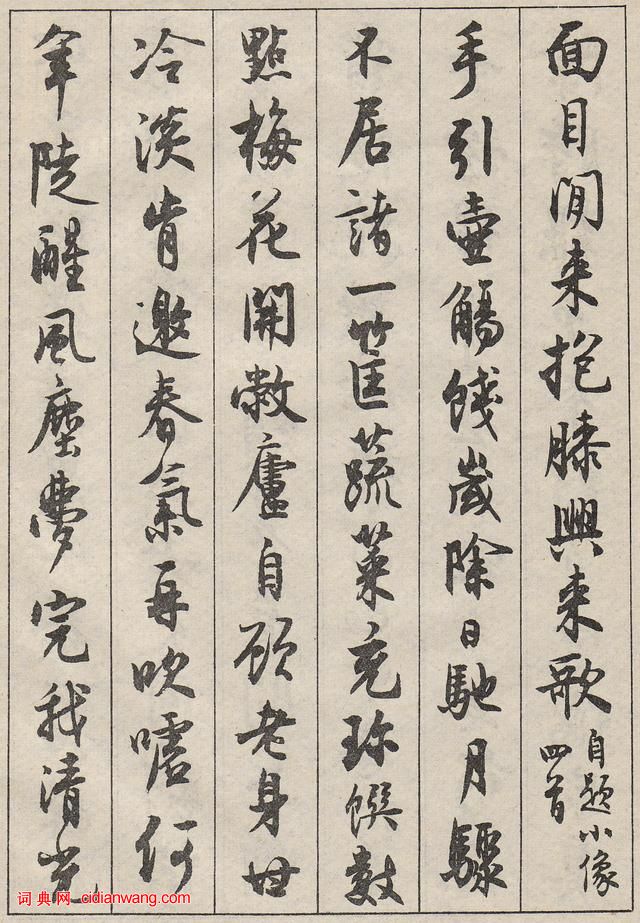 面目閒来抱膝興来歌自題小像四首
手引壺觴餞歲除日馳月驟
不居諸一筐蔬菜充珍饌數
點梅花開敝廬自顧老身世
冷淡肯邀春氣再吹噓何
年陡醒風塵夢完我清光
词典网 cidianwang.com